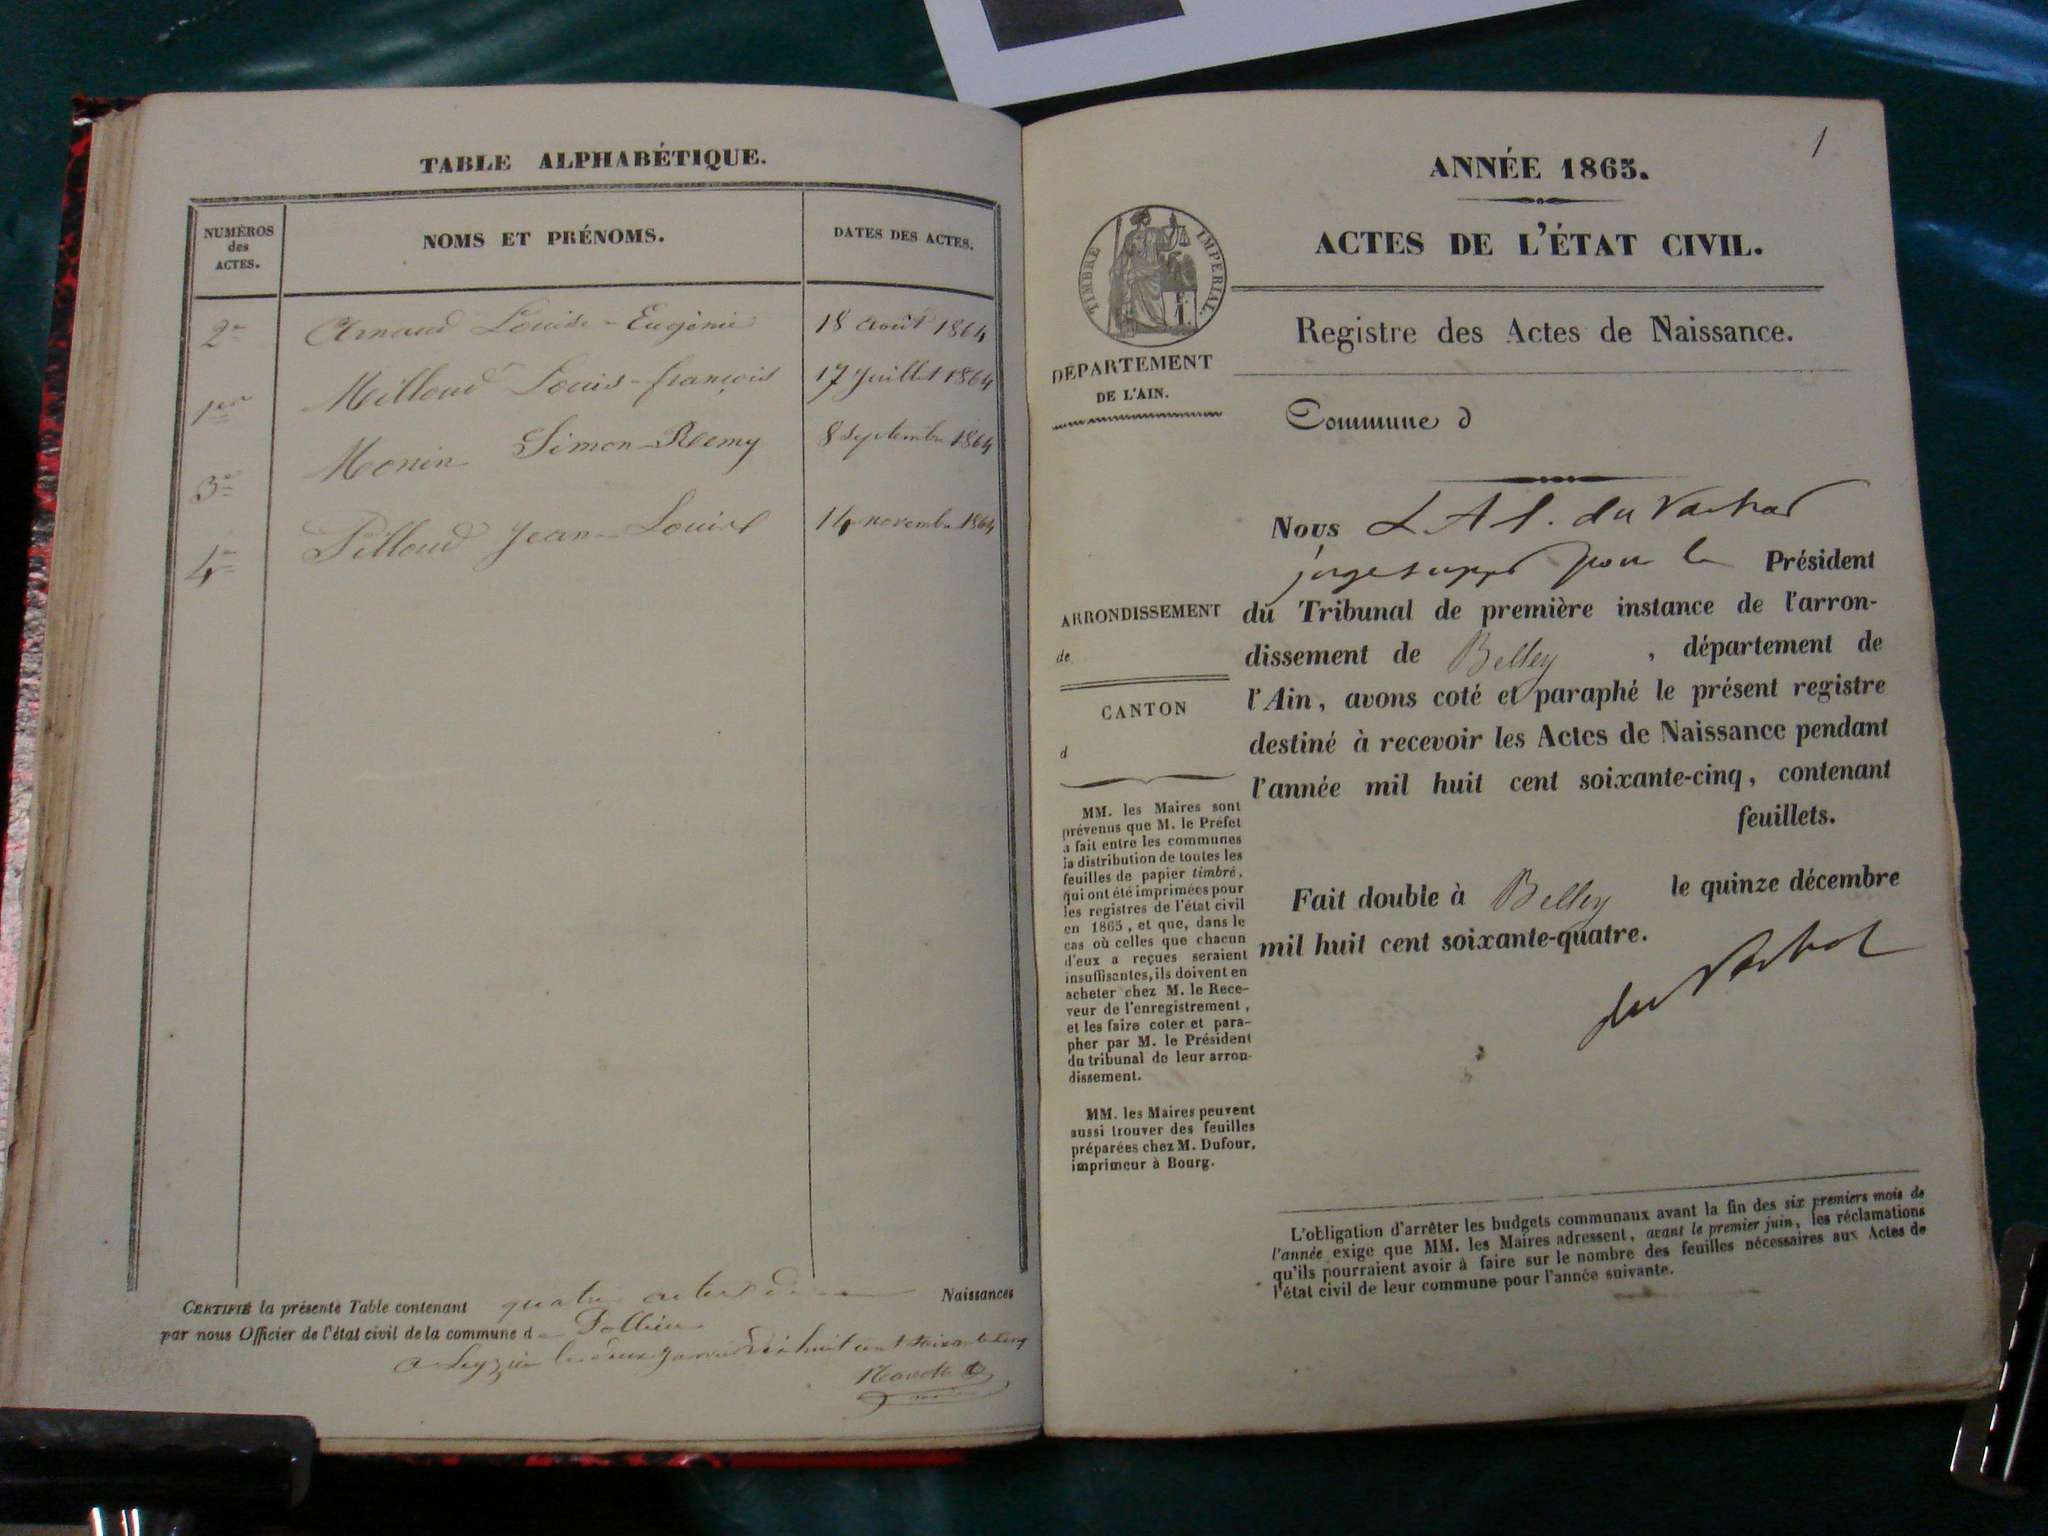 TABLE ALPHABÉTIQUE.
NUMÉROS
des
ACTES.
NOMS ET PRÉNOMS.
DATES DES ACTES.
2e Arnaud Louise-Eugénie 18 Août 1864
1er Milloud Louis-françois 17 Juillet 1864
3e Monin Simon-Remy 8 Septembre 1864
4e Pilloud Jean-Louis 14 novembre 1864
CERTIFIÉ la présente Table contenant quatre actes de Naissances
par nous Officier de l'état civil de la commune d
le deux Janvier huit cent soixante cinq
1
ANNÉE 1865.
ACTES DE L'ÉTAT CIVIL.
TIMBRE IMPERIAL.
Registre des Actes de Naissance.
DÉPARTEMENT
DE L'AIN.
Commune d
ARRONDISSEMENT
de
CANTON
d
MM. les Maires sont
prévenus que M. le Préfet
a fait entre les communes
la distribution de toutes les
feuilles de papier timbré,
qui ont été imprimées pour
les registres de l'état civil
en 1865, et que, dans le
cas où celles que chacun
d'eux a reçues seraient
insuffisantes, ils doivent en
acheter chez M. le Rece-
veur de l'enregistrement,
et les faire coter et para-
pher par M. le Président
du tribunal de leur arron-
dissement.
MM. les Maires peuvent
aussi trouver des feuilles
préparées chez M. Dufour,
imprimeur à Bourg.
Nous
pour le Président
du Tribunal de première instance de l'arron-
dissement de Belley, département de
l'Ain, avons coté et paraphé le présent registre
destiné à recevoir les Actes de Naissance pendant
l'année mil huit cent soixante-cinq, contenant
feuillets.
Fait double à Belley le quinze décembre
mil huit cent soixante-quatre.
L'obligation d'arrêter les budgets communaux avant la fin des six premiers mois de
l'année exige que MM. les Maires adressent, avant le premier juin, les réclamations
qu'ils pourraient avoir à faire sur le nombre des feuilles nécessaires aux Actes de
l'état civil de leur commune pour l'année suivante.